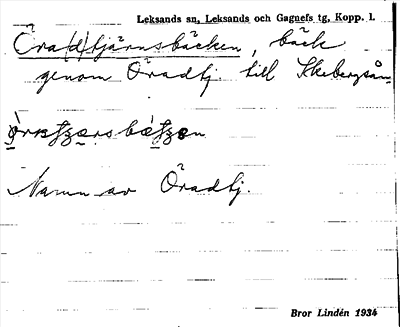 Leksands sn, Leksands och Gagnefs tg, Kopp. l.
Öra(d)tjärnsbäcken, bäck
genom Öradtj. till Skebergsån
Namn av Öradtj.
Bror Lindén 1934